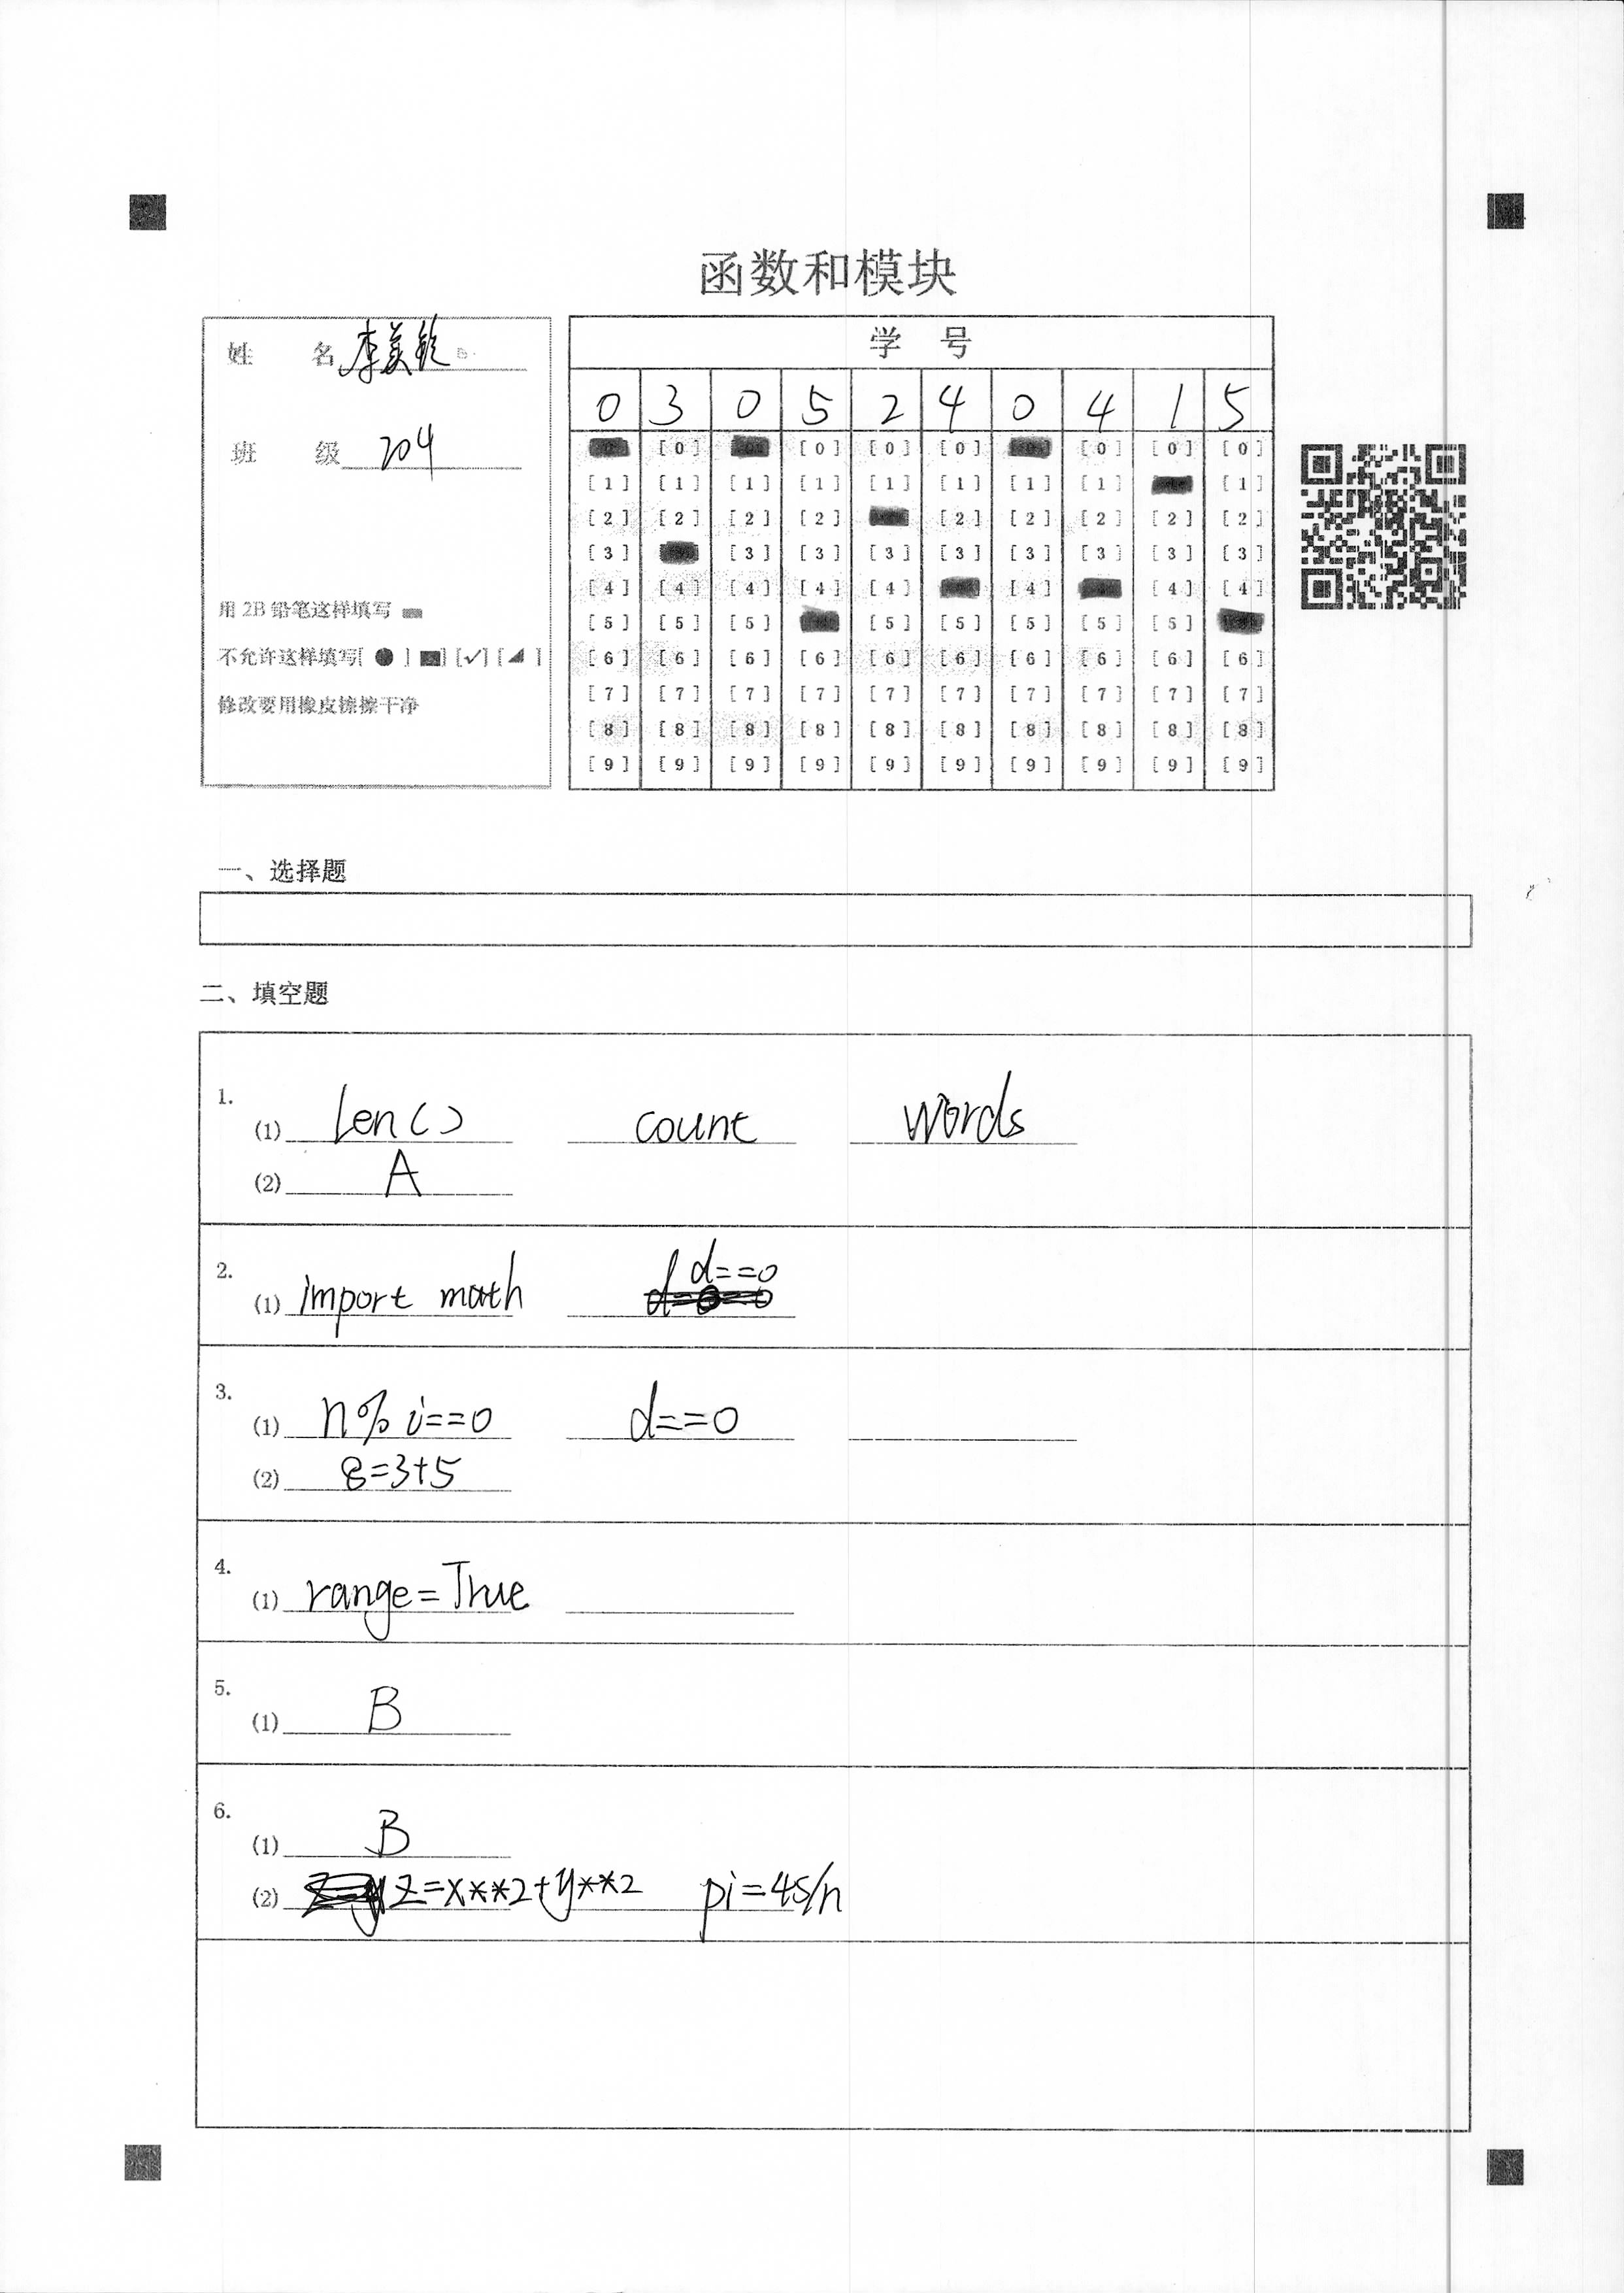 函数和模块
姓 名 李美铃
班 级 204
用 2B 铅笔这样填写
不允许这样填写[ ● ] [■] [✓] [◢ ]
修改要用橡皮擦擦干净
学 号
0 3 0 5 2 4 0 4 1 5
[0] [0] [0] [0] [0] [0] [0]
[1] [1] [1] [1] [1] [1] [1] [1] [1]
[2] [2] [2] [2] [2] [2] [2] [2] [2]
[3] [3] [3] [3] [3] [3] [3] [3] [3]
[4] [4] [4] [4] [4] [4] [4] [4]
[5] [5] [5] [5] [5] [5] [5] [5]
[6] [6] [6] [6] [6] [6] [6] [6] [6] [6]
[7] [7] [7] [7] [7] [7] [7] [7] [7] [7]
[8] [8] [8] [8] [8] [8] [8] [8] [8] [8]
[9] [9] [9] [9] [9] [9] [9] [9] [9] [9]
一、选择题
二、填空题
1.
(1) len() count words
(2) A
2.
(1) import math d==0
3.
(1) n% i==0 d==0
(2) 8=3+5
4.
(1) range=True
5.
(1) B
6.
(1) B
(2) z=x**2+y**2 pi=4s/n